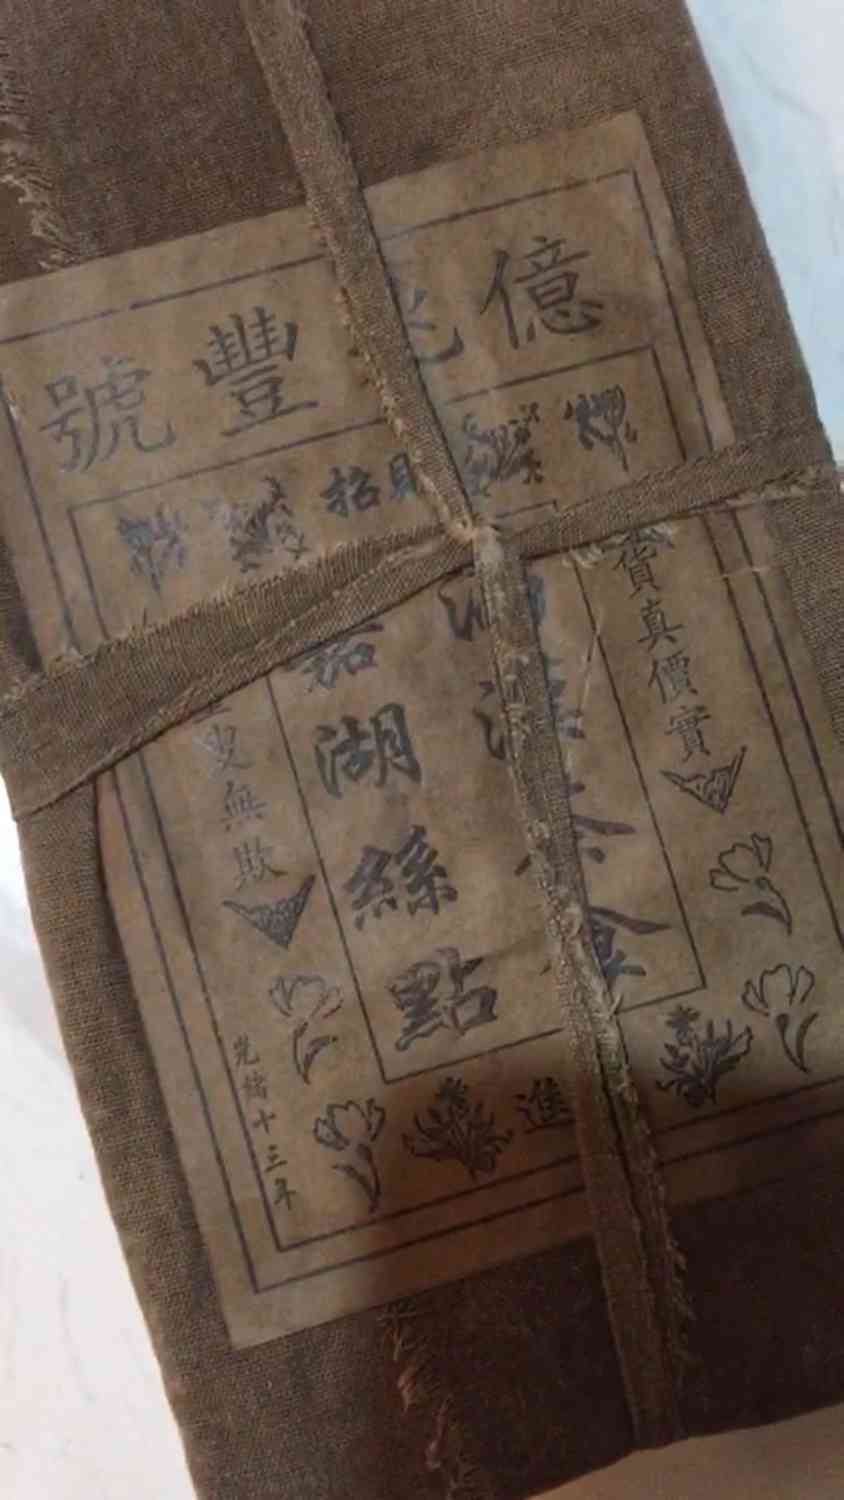 億兆豐號
招財
貨真價實
茶食
湖絲點
叟無欺
光緒十三年
進